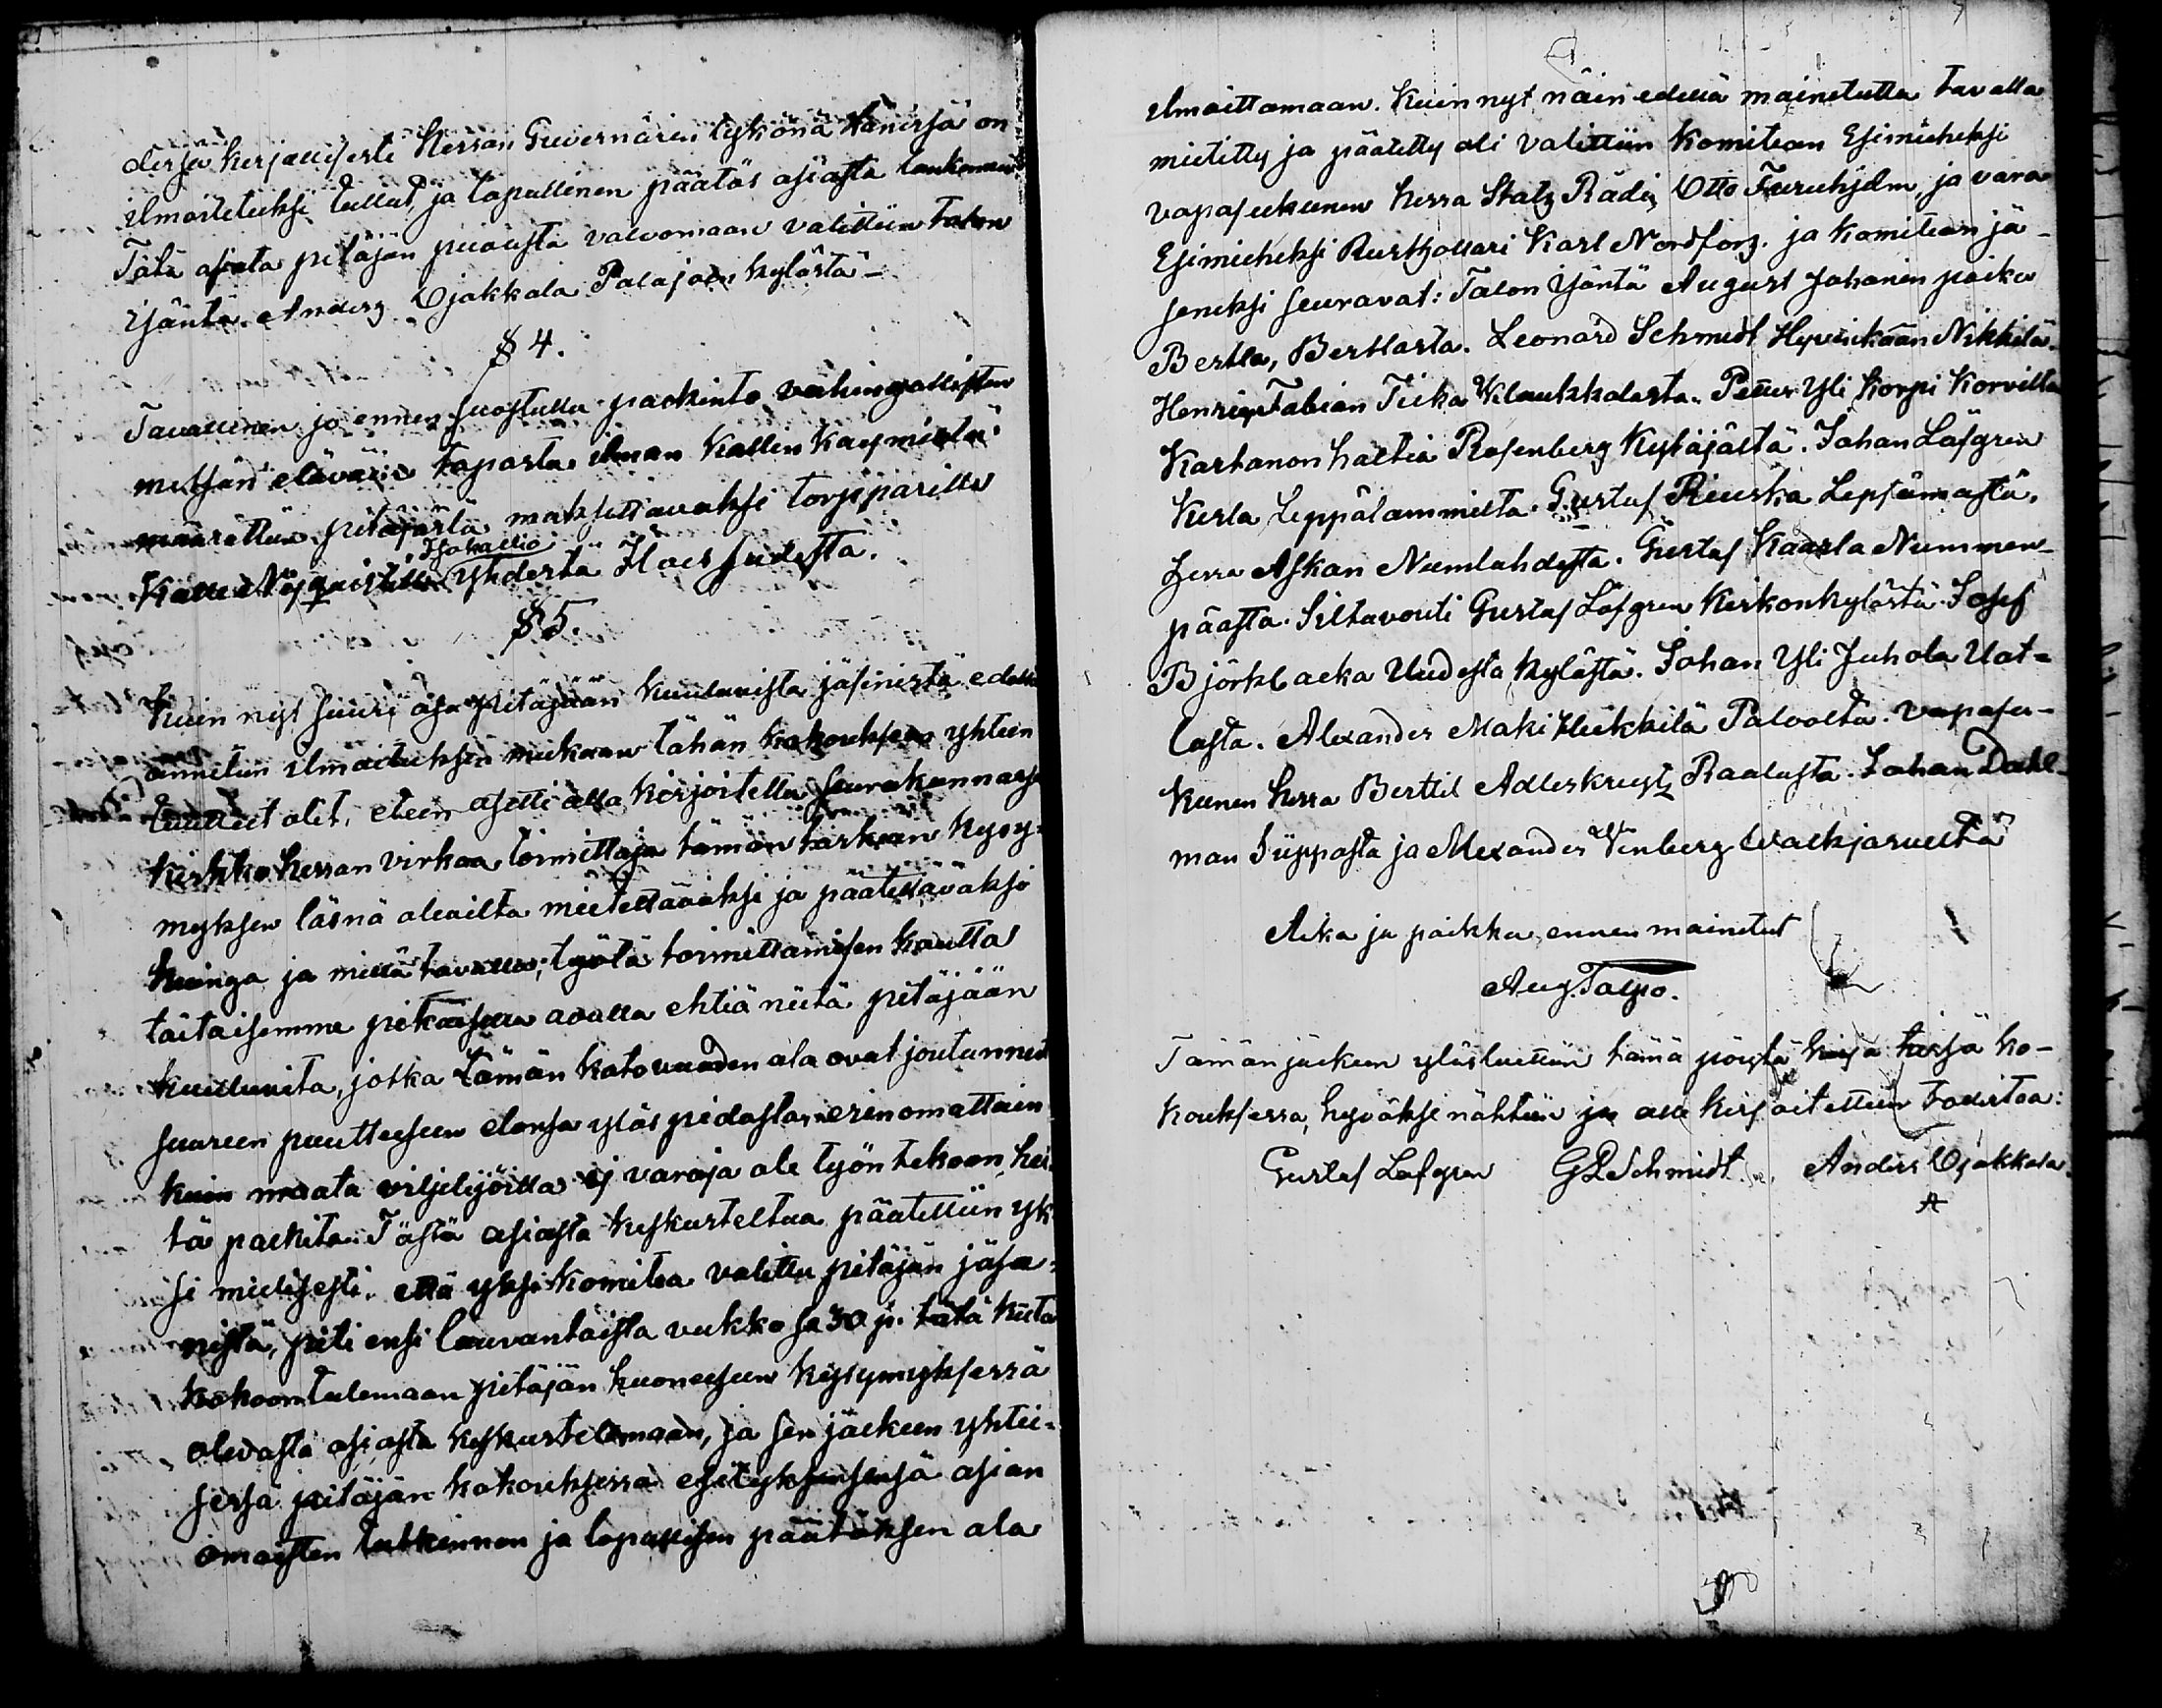 olessa kirjallisesti Herran Guvernörin tykönä hänessä on
ilmoitetuksi tullut, ja lopullinen päätös asiasta lankennut
Tätä asiata pitäjän puolesta valvomaan valittiin talon
Isäntä Anders Ojakkala Palajoen kylästä –
§ 4.
Tavallinen jo ennen suostuttu palkinto vahingollisten
metsän eläväin taposta ilman kallen kaymistä
määrättiin pitäjästä maksettavaksi torpparille
Isokallio
Kalle Nyqvistille yhdestä Ilves sudesta.
§ 5.
Kuin nyt suuri osa pitäjään kuuluvista jäsenistä edellä
annetun ilmoituksen mukaan tähän kokouksen yhteen
tulleet olit, eteen asetti alla kirjoitettu Seurakunnassa
Kirkko herran virkaa toimittaja tämän tärkeän kysy-
myksen läsnä olevilta mietittääväksi ja päätettäväksi
kuinga ja millä tavalla, työtä toimittamisen kautta
taitaisemme pikaisella avulla ehtiä niitä pitäjään
kuuluvita, jotka tämän katovuoden ala ovat joutunnet
suureen puutteeseen elonsa ylös pidosta, erinomattain
kuin maata viljelijöillä ej varoja ole työn tekoon hei-
tä palkita. Tästä asiasta keskusteltua päätettiin yk
si mielisesti, että yksi Komitea valittu pitäjän jäse-
nistä, piti ensi lauvantaista viikko sa 30 p. tätä kuta
kokoontulemaan pitäjän huoneseen kysymyksessä
olevasta asiasta keskustelemaan, ja sen jälkeen yhtei-
sessä pitäjän kokouksessa esityksensensä asian
omaisten tutkinnon ja lopullisen päätöksen ala
ilmoittamaan. Kuin nyt näin edellä mainitulla tavalla
mietitty ja päätetty oli valittiin Komitean Esimieheksi
vapasukunen herra Statz Rådi Otto Furuhjelm, ja vara
Esimieheksi Rusthollari Karl Nordfors. ja Komitean jä-
seneksi seuravat: Talon Isäntä August Johanin poika
Bertla, Berttasta. Leonard Schmidt Hyvinkään Nikkilä.
Henrig Fabian Tiika Klaukkalasta. Petter Yli Korpi Korvilta
Kartanon haltia Rosenberg Kytäjältä. Johan Löfgren
Kurla Leppälammilta. Gustaf Riuska Lepsämästä.
herra Askan Numlahdesta. Gustaf Kaarla Nummen-
päästä. Siltavouti Gustaf Löfgren Kirkonkylästä Josef
Björkbacka Uudesta kylästä. Johan Yli Juhola Uot-
lasta. Alexander Maki Heikkilä Palvolta. vapasu-
kunen herra Berttil Adlerkreutz Raalasta. Johan Dahl-
man Siippasta ja Alexander Vinberg Walkjärveltä
Aika ja paikka ennen mainitut
Aug. Taipo.
Tämän jälkeen ylösluettiin tämä pöytä kirja tässä ko-
kouksessa, hyväksi nähtiin ja alle kirjoitettiin todistaa:
Gustaf Lofgren G L Schmidt. Anders Ojakkala